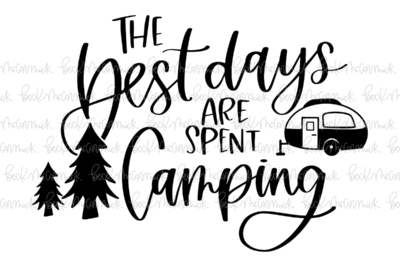 THE
best days
ARE
SPENT
Camping